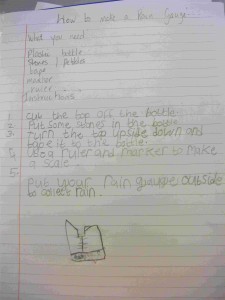 How to make a Rain Guage
What you need
Plastic bottle
Stones / Pebbles
tape
marker
ruler
Instructions
1. Cut the top off the bottle.
2. Put some stones in the bottle.
3. Turn the top upside down and
tape it to the bottle.
4. Use a ruler and marker to make
a scale.
5.
Put your rain guage outside
to collect rain.